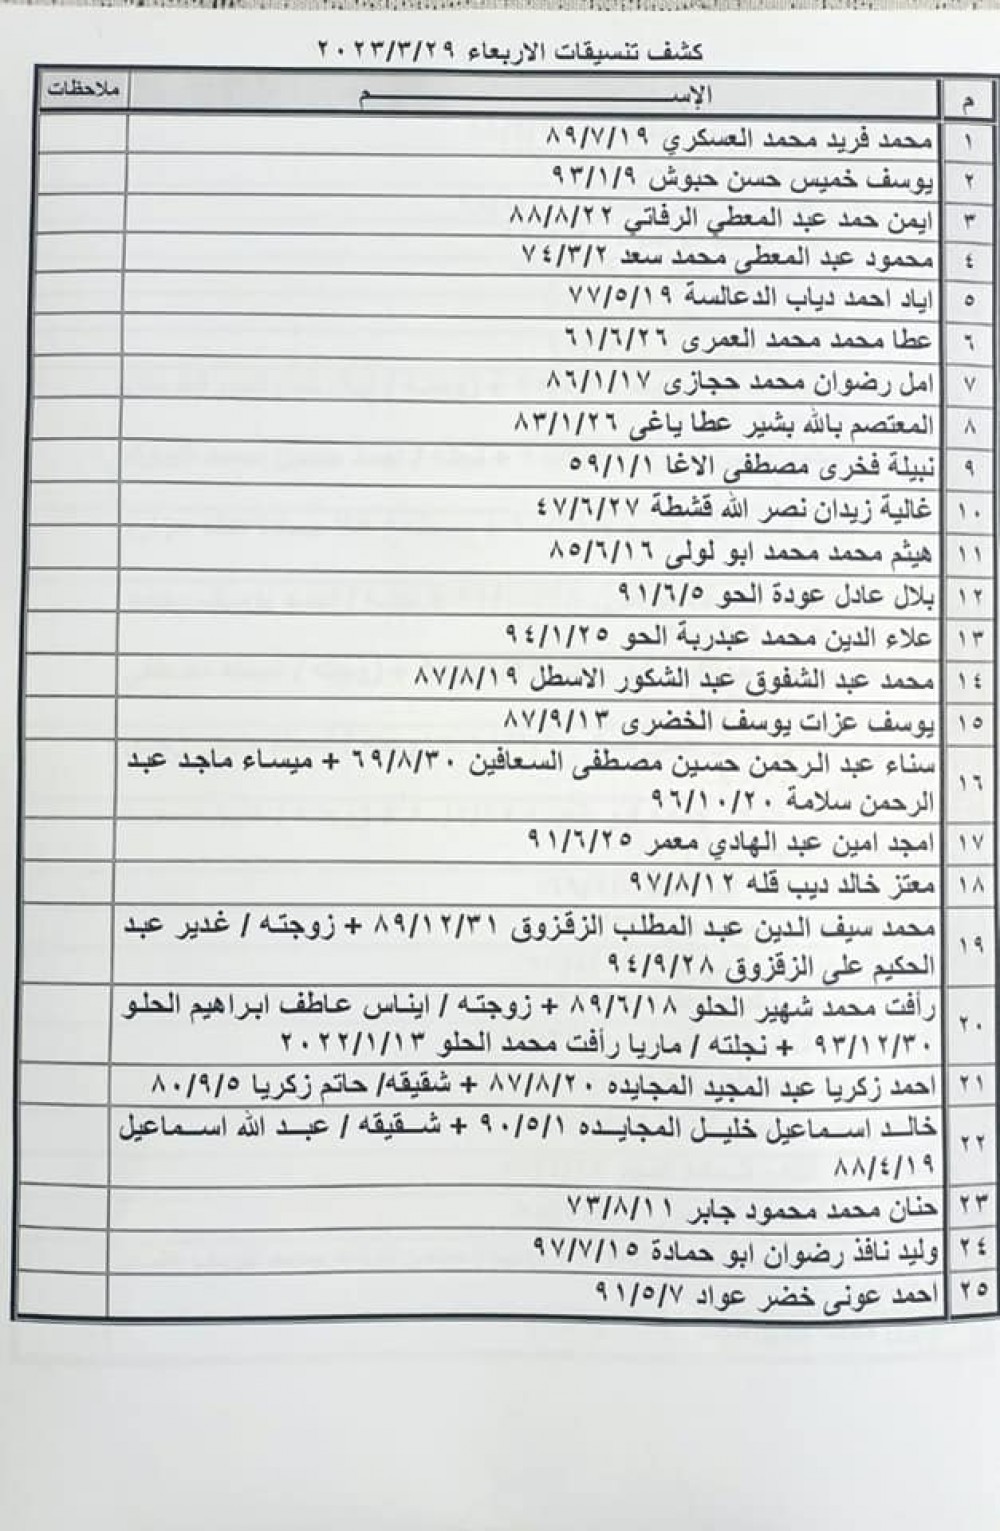 كشف تنسيقات الاربعاء ٢٠٢٣/٣/٢٩
م الإســـم ملاحظات
١ محمد فريد محمد العسكري ٨٩/٧/١٩
٢ يوسف خميس حسن حبوش ٩٣/١/٩
٣ ايمن حمد عبد المعطي الرفاتي ٨٨/٨/٢٢
٤ محمود عبد المعطى محمد سعد ٧٤/٣/٢
٥ اياد احمد دياب الدعالسة ٧٧/٥/١٩
٦ عطا محمد محمد العمرى ٦١/٦/٢٦
٧ امل رضوان محمد حجازى ٨٦/١/١٧
٨ المعتصم بالله بشير عطا ياغى ٨٣/١/٢٦
٩ نبيلة فخرى مصطفى الاغا ٥٩/١/١
١٠ غالية زيدان نصر الله قشطة ٤٧/٦/٢٧
١١ هيثم محمد محمد ابو لولى ٨٥/٦/١٦
١٢ بلال عادل عودة الحو ٩١/٦/٥
١٣ علاء الدين محمد عبدربة الحو ٩٤/١/٢٥
١٤ محمد عبد الشفوق عبد الشكور الاسطل ٨٧/٨/١٩
١٥ يوسف عزات يوسف الخضرى ٨٧/٩/١٣
١٦ سناء عبد الرحمن حسين مصطفى السعافين ٦٩/٨/٣٠ + ميساء ماجد عبد
الرحمن سلامة ٩٦/١٠/٢٠
١٧ امجد امين عبد الهادي معمر ٩١/٦/٢٥
١٨ معتز خالد ديب قله ٩٧/٨/١٢
١٩ محمد سيف الدين عبد المطلب الزقزوق ٨٩/١٢/٣١ + زوجته / غدير عبد
الحكيم على الزقزوق ٩٤/٩/٢٨
٢٠ رأفت محمد شهير الحلو ٨٩/٦/١٨ + زوجته / ايناس عاطف ابراهيم الحلو
٩٣/١٢/٣٠ + نجلته / ماريا رأفت محمد الحلو ٢٠٢٢/١/١٣
٢١ احمد زكريا عبد المجيد المجايده ٨٧/٨/٢٠ + شقيقه/ حاتم زكريا ٨٠/٩/٥
٢٢ خالد اسماعيل خليل المجايده ٩٠/٥/١ + شقيقه / عبد الله اسماعيل
٨٨/٤/١٩
٢٣ حنان محمد محمود جابر ٧٣/٨/١١
٢٤ وليد نافذ رضوان ابو حمادة ٩٧/٧/١٥
٢٥ احمد عونى خضر عواد ٩١/٥/٧